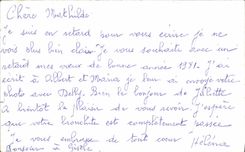 Chère Mathilde
Je suis en retard pour vous écrire je ne
vois plus bien clair. Je vous souhaite avec un
retard mes vœux de bonne année 1981. J'ai
écrit à Albert et Maria je leur ai envoyé votre
photo avec Betty. Bien le bonjour de Juliette
à bientôt le plaisir de vous revoir j'espère
que votre bronchite est complètement passée
je vous embrasse de tout cœur Hélène
Bonjour à